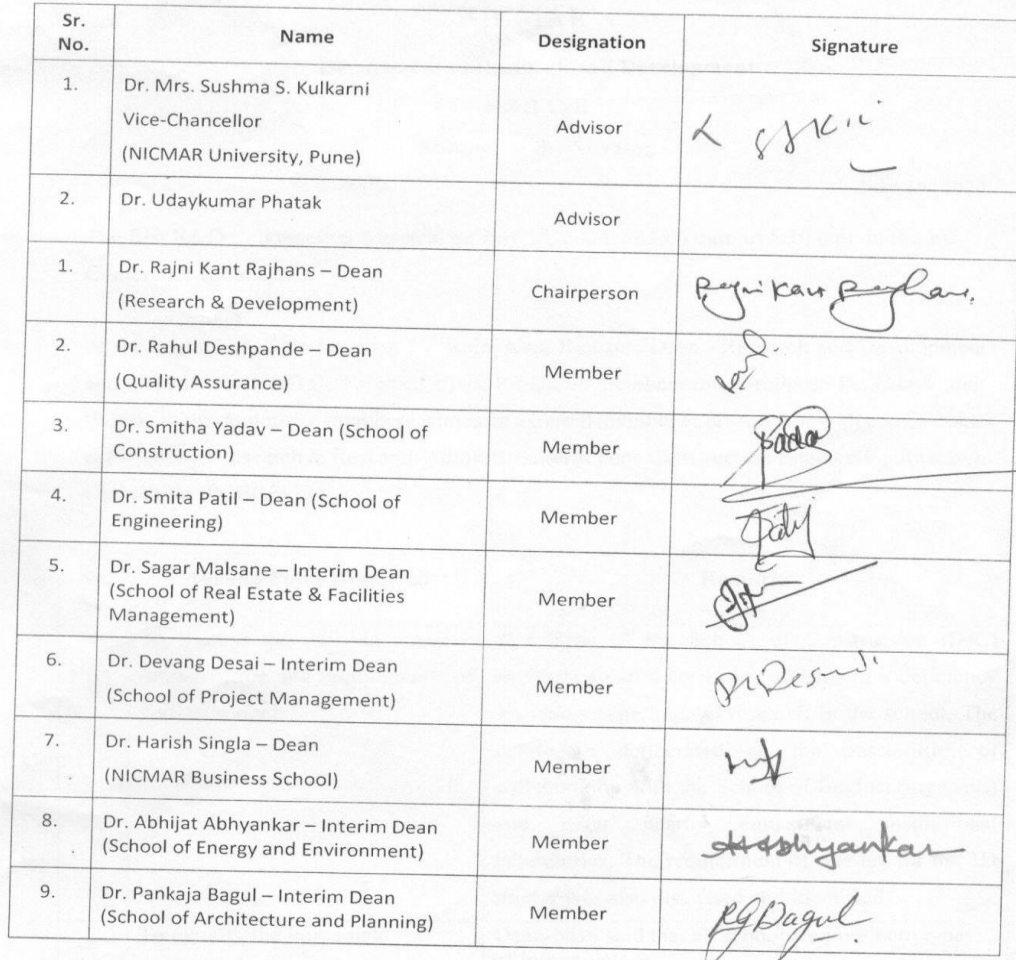 Sr. No. Name Designation Signature
1. Dr. Mrs. Sushma S. Kulkarni
Vice-Chancellor
(NICMAR University, Pune)
Advisor
2. Dr. Udaykumar Phatak
Advisor
1. Dr. Rajni Kant Rajhans – Dean
(Research & Development)
Chairperson
2. Dr. Rahul Deshpande – Dean
(Quality Assurance)
Member
3. Dr. Smitha Yadav – Dean (School of
Construction)
Member
4. Dr. Smita Patil – Dean (School of
Engineering)
Member
5. Dr. Sagar Malsane – Interim Dean
(School of Real Estate & Facilities
Management)
Member
6. Dr. Devang Desai – Interim Dean
(School of Project Management)
Member
7. Dr. Harish Singla – Dean
(NICMAR Business School)
Member
8. Dr. Abhijat Abhyankar – Interim Dean
(School of Energy and Environment)
Member
9. Dr. Pankaja Bagul – Interim Dean
(School of Architecture and Planning)
Member